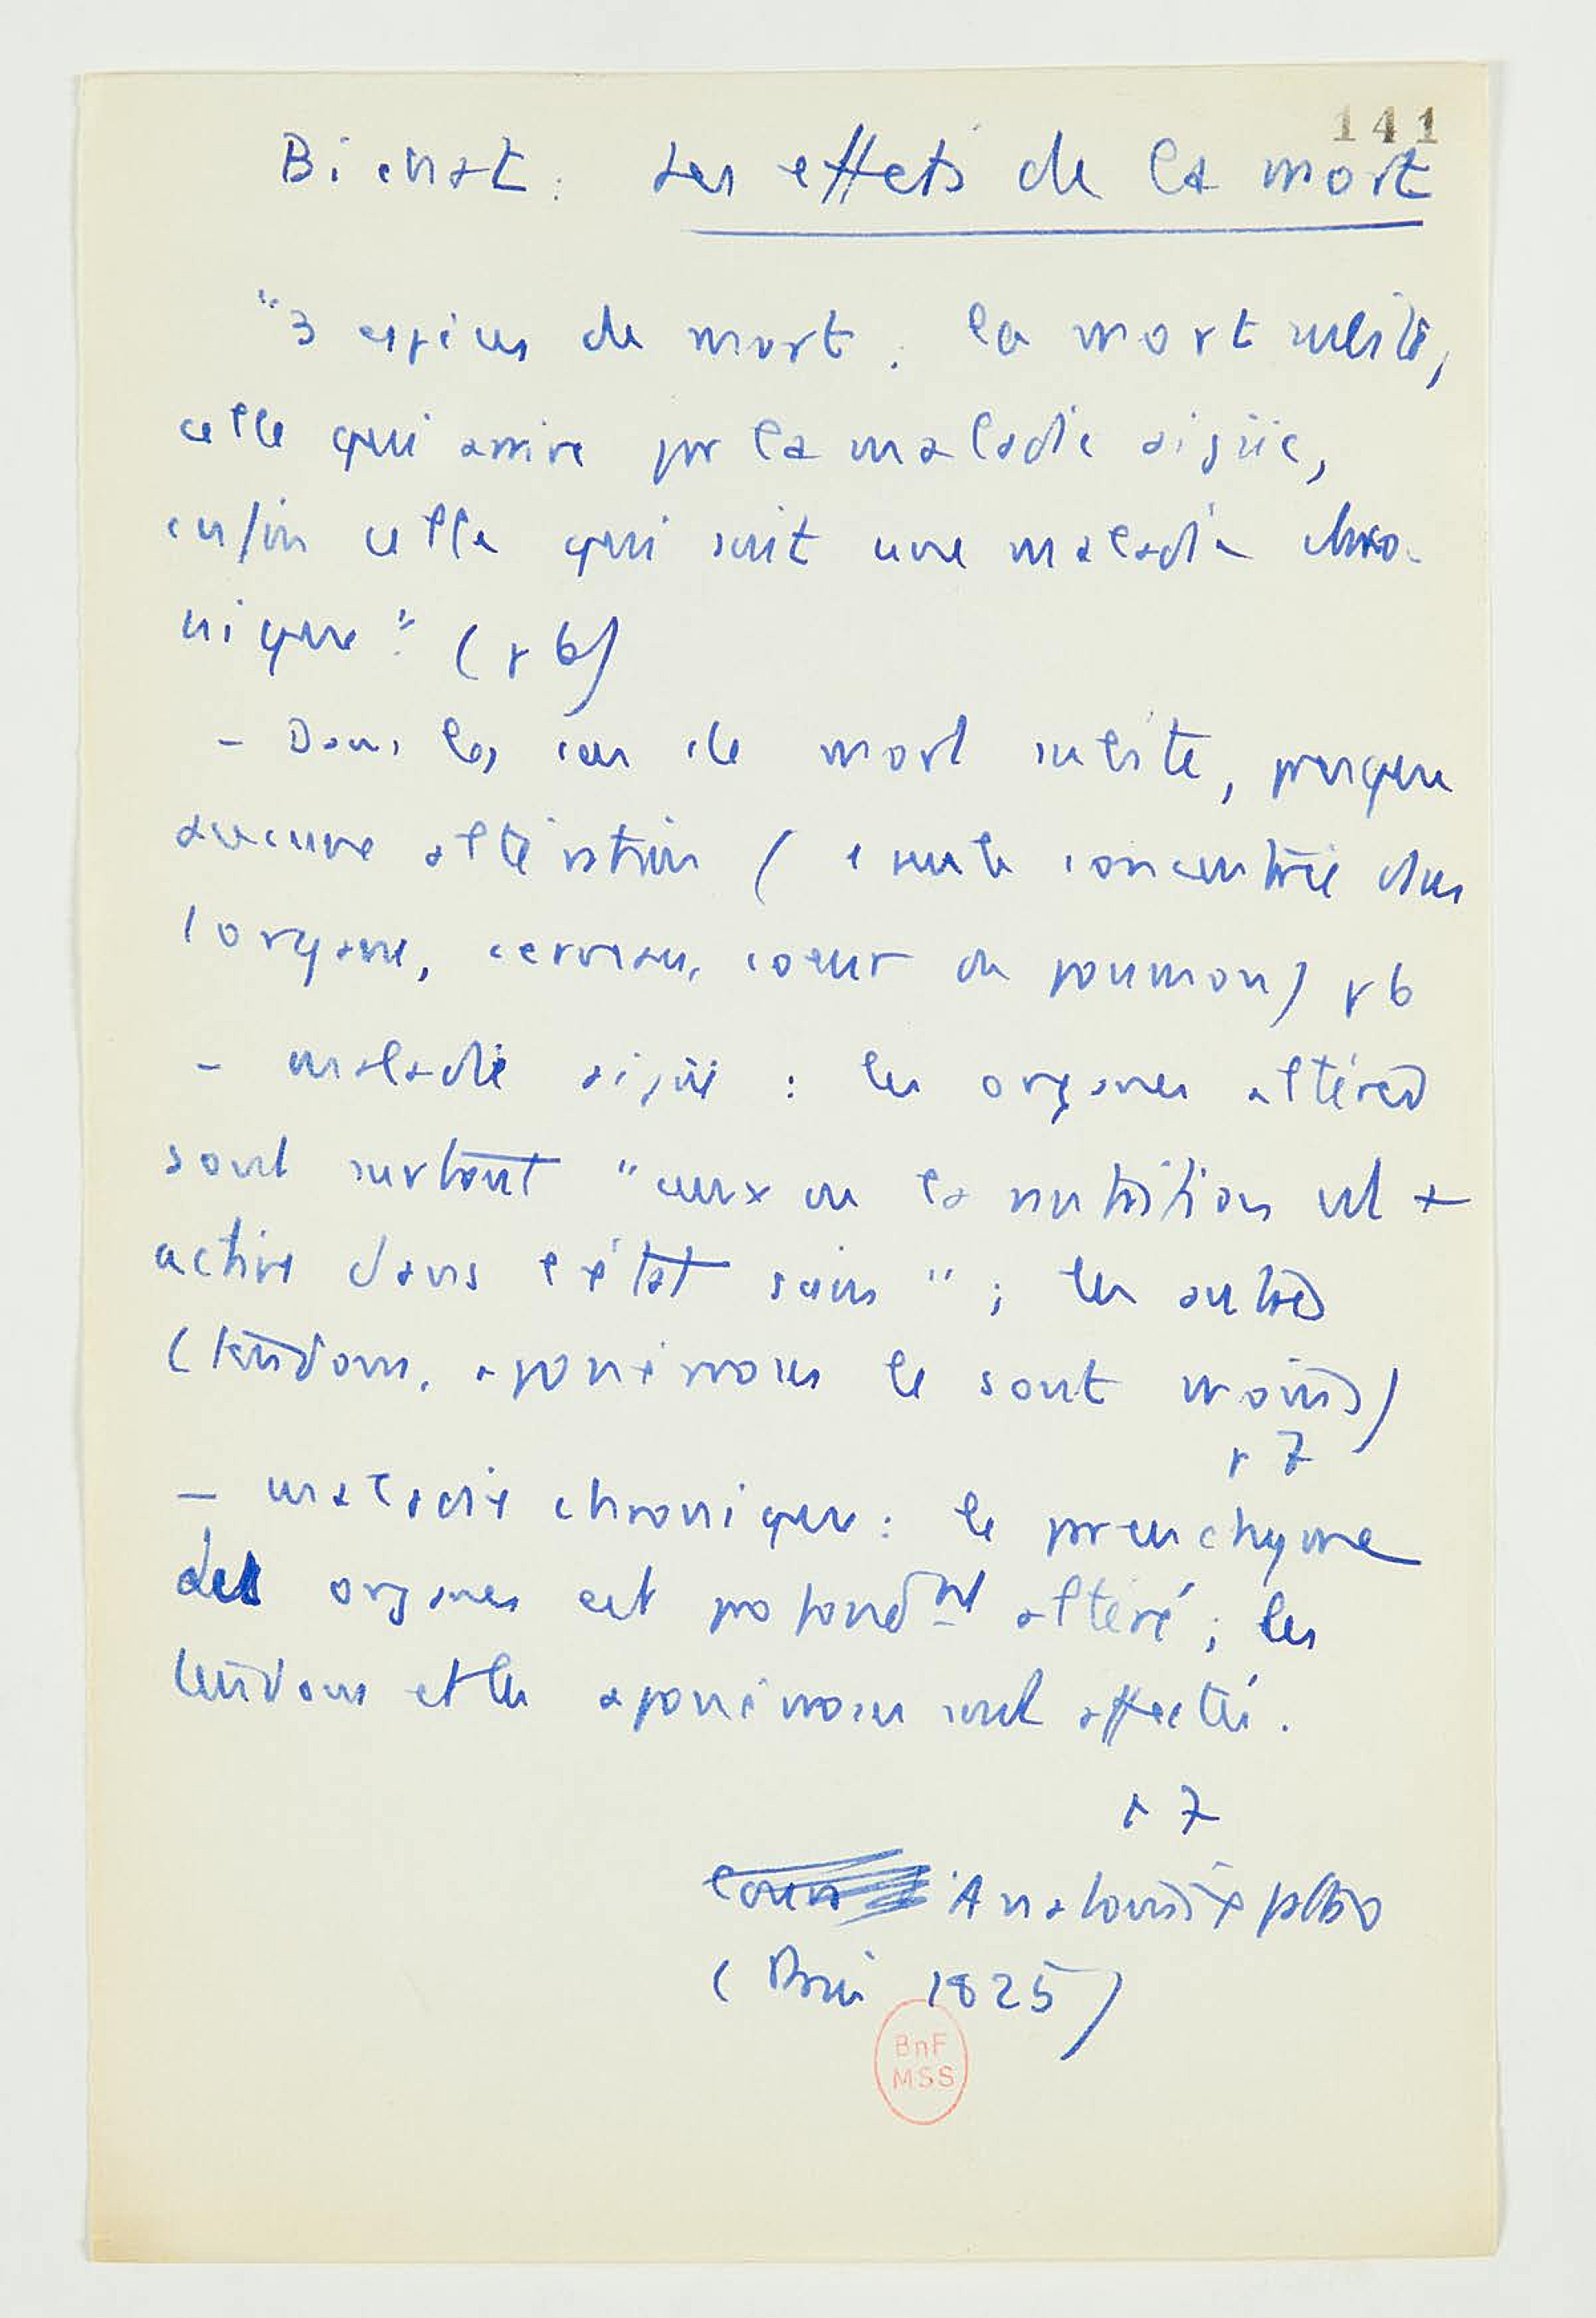 141
Bichat : Les effets de la mort
"3 espèces de mort : la mort subite,
celle qui arrive par la maladie aigüe,
enfin celle qui suit une maladie chro-
nique" (p 6)
- Dans les cas de mort subite, presque
aucune altération ( concentrée dans
1 organe, cerveau, coeur ou poumon) p 6
- maladie aigüe : les organes altérés
sont surtout "ceux où la nutrition est +
active dans l'état sain" ; les autres
(tendons, aponévroses le sont moins)
p 7
- maladie chronique : le parenchyme
des organes est profondmt altéré ; les
tendons et les aponévroses sont affectés.
p 7
Anatomie patho
(Paris 1825)
BnF
MSS